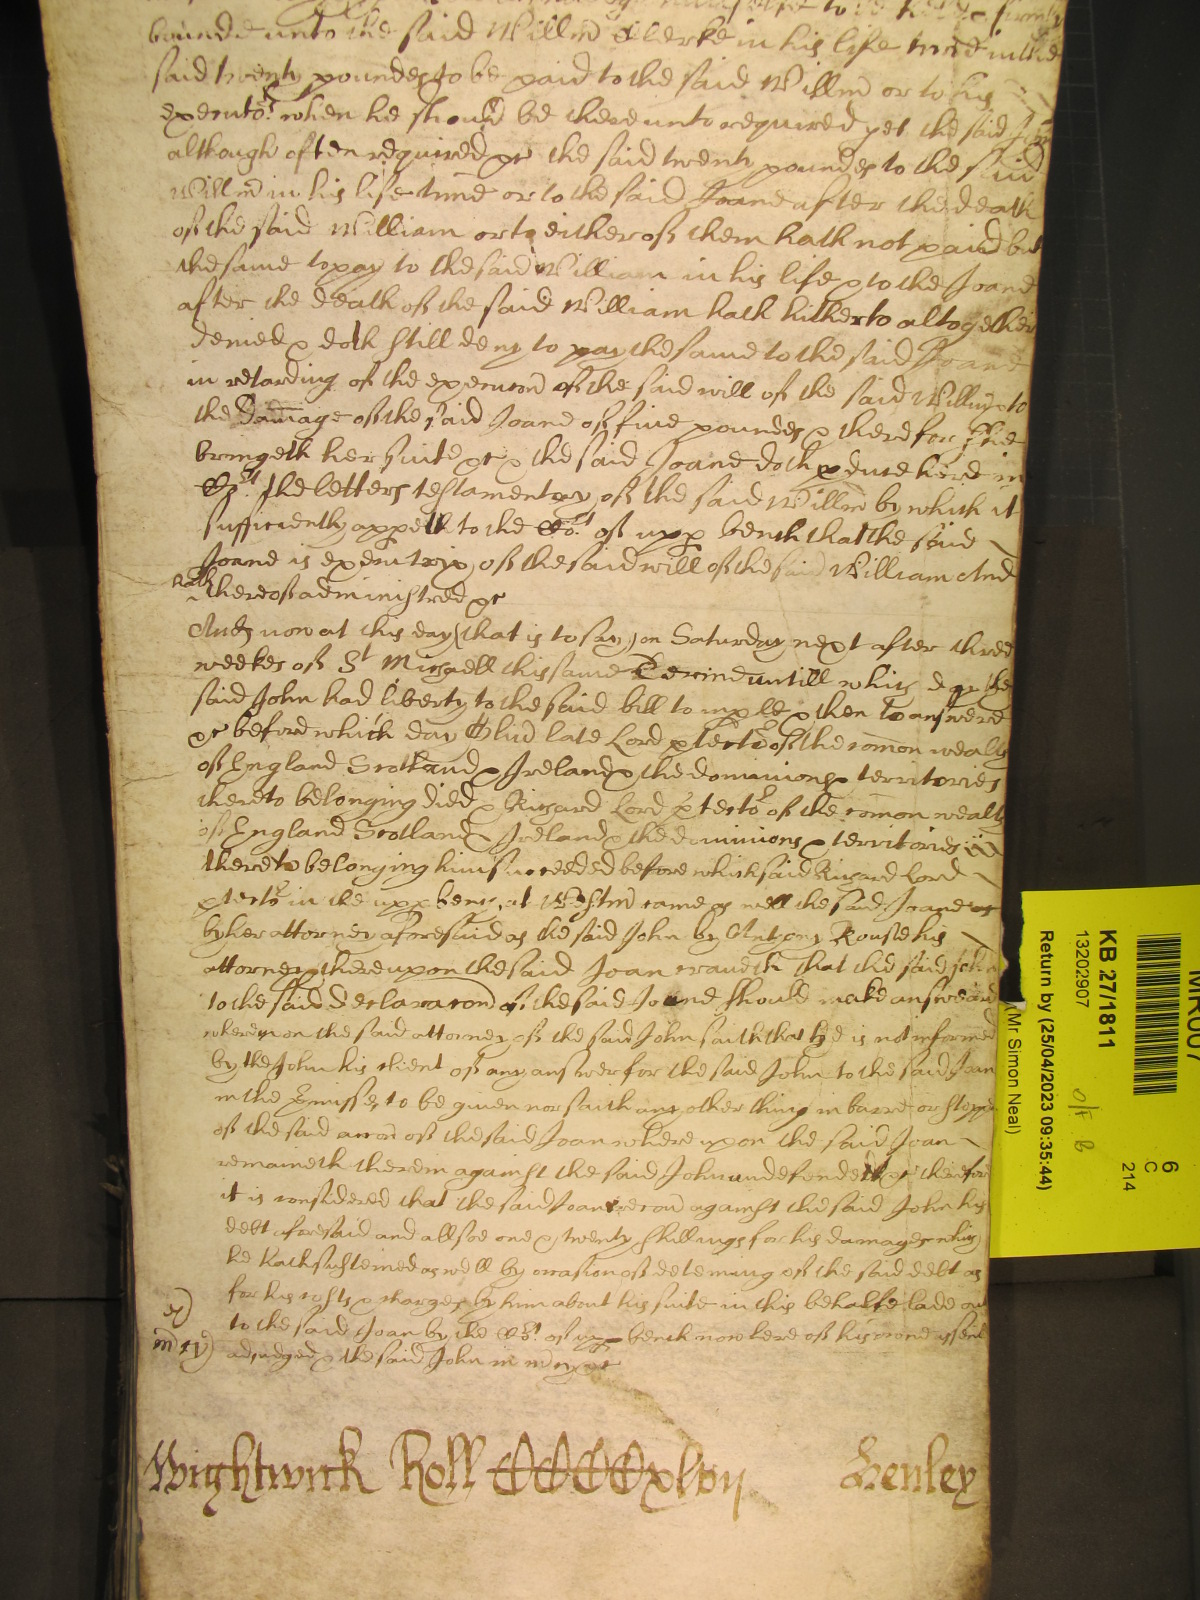 bounde unto the said Willm Clerke in his life time in the
said twenty poundes to be paid to the said Willm or to his
executors when he should be thereunto required yet the said John
although often required &c the said twenty poundes to the said
Willm in his life time or to the said Joane after the death
of the said William or to either of them hath not paid but
the same to pay to the said William in his life & to the Joane
after the death of the said William hath hitherto altogether
denied & doth still deny to pay the same to the said Joane
in retarding of the execucon of the said will of the said Willm & to
the damage of the said Joane of five poundes & therefor shee
bringeth her suite &c & the said Joane doth pduce here in
Cort the letters testamentory of the said Willm by which it
sufficiently appeth to the Cort of upp bench that the said
Joane is executrix of the said will of the said William And
hath thereof administred &c
And now at this day (that is to say) on Saturday next after three
weekes of St Michaell this same Terme untill which day the
said John had liberty to the said bill to imple & then to answere
&c before which day Oliv late Lord ptector of the comon wealth
of England Scotland & Ireland & the dominions & territories
thereto belonging died & Richard Lord ptector of the comon wealth
of England Scotland & Ireland & the dominions & territories
thereto belonging him succeeded before which said Richard Lord
ptector in the upp bench at Westmr came as well the said Joane
by her attorney aforesaid as the said John by Antony Rouse his
attorney & thereupon the said Joan craveth that the said John
to the said declaracon of the said Joane should make answere and
whereupon the said attorney of the said John saith that he is not informed
by the John his client of any answer for the said John to the said Joan
in the pmisses to be given nor saith any other thing in barre or
of the said accon of the said Joan whereupon the said Joan
remaineth therein against the said John undefended &c therefore
it is considered that the said Joan recov against the said John his
debt aforesaid and allsoe one & twenty shillings for his damages which
he hath susteined as well by occasion of deteining of the said debt as
for his costs & charges by him about his suite in this behalfe laide out
to the said Joan by the Cort of upp bench now here of his owne assent
adjudged & the said John in mcy &c
Wightwick Roll CCCCxlvij Henley
MR007
KB 27/1811
13202907
Return by (25/04/2023 09:35:44)
(Mr Simon Neal)
6
C
214